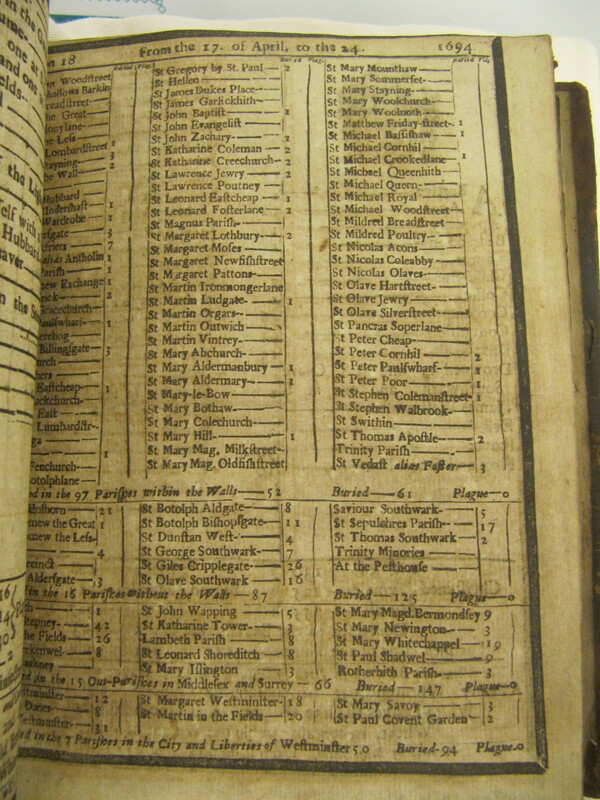 n 18 From the 17. of April, to the 24. 1694
Buried Plag. Buried Plag. Buried Plag.
n Woodstreet
hallows Barkin
readstreet
he Great
the Less
Lombardstreet 1
Stayning 3
the Wall 2
Hubbard
Wardrobe 1
3
7
alias Antholin 1
Parish 1
new Exchange 1
2
Gracechurch
1
Billingsgate 3
urch
Eastcheap 1
ackchurch
East
Lumbardstr-
1
Fenchurch
otolphlane
St Gregory by St. Paul 2
St Hellen
St James Dukes Place
St James Garlickhith
St John Baptist 1
St John Evangelist
St John Zachary 1
St Katharine Coleman 2
St Katharine Creechurch 2
St Lawrence Jewry 2
St Lawrence Poutney
St Leonard Eastcheap 1
St Leonard Fosterlane 2
St Magnus Parish
St Margaret Lothbury 2
St Margaret Moses
St Margaret Newfishstreet
St Margaret Pattons
St Martin Ironmongerlane
St Martin Ludgate 1
St Martin Orgars
St Martin Outwich
St Martin Vintrey
St Mary Abchurch
St Mary Aldermanbury 1
St Mary Aldermary 1
St Mary-le-Bow
St Mary Bothaw
St Mary Colechurch
St Mary Hill 1
St Mary Mag. Milkstreet
St Mary Mag. Oldfishstreet
St Mary Mounthaw
St Mary Sommerset
St Mary Stayning
St Mary Woolchurch
St Mary Woolnoth
St Matthew Friday-street 1
St Michael Bassishaw 1
St Michael Cornhil
St Michael Crookedlane 1
St Michael Queenhith
St Michael Queen
St Michael Royal
St Michael Woodstreet
St Mildred Breadstreet
St Mildred Poultry
St Nicolas Acons
St Nicolas Coleabby
St Nicolas Olaves
St Olave Hartstreet
St Olave Jewry
St Olave Silverstreet
St Pancras Soperlane
St Peter Cheap
St Peter Cornhil 2
St Peter Paulswharf 1
St Peter Poor 1
St Stephen Colemanstreet 1
St Stephen Walbrook
St Swithin
St Thomas Apostle 2
Trinity Parish
St Vedast alias Foster 3
ed in the 97 Parishes within the Walls 52 Buried 61 Plague 0
Holborn 21
mew the Great 1
mew the Less
4
recinct
Aldersgate 3
St Botolph Aldgate 8
St Botolph Bishopsgate 11
St Dunstan West 4
St George Southwark 7
St Giles Cripplegate 26
St Olave Southwark 16
Saviour Southwark 5
St Sepulchres Parish 17
St Thomas Southwark 2
Trinity Minories
At the Pesthouse
in the 16 Parishes without the Walls 87 Buried 125 Plague 0
1
Stepney 42
the Fields 26
8
St John Wapping 5
St Katharine Tower 3
Lambeth Parish 8
St Leonard Shoreditch 8
St Mary Islington 3
St Mary Magd. Bermondsey 9
St Mary Newington 3
St Mary Whitechappel 19
St Paul Shadwel 9
Rotherhith Parish 3
in the 15 Out-Parishes in Middlesex and Surrey 66 Buried 147 Plague 0
Westminster 12
Danes 8
Westminster 31
St Margaret Westminster 18
St Martin in the Fields 20
St Mary Savoy 3
St Paul Covent Garden 2
ed in the 7 Parishes in the City and Liberties of Westminster 50 Buried 94 Plague 0